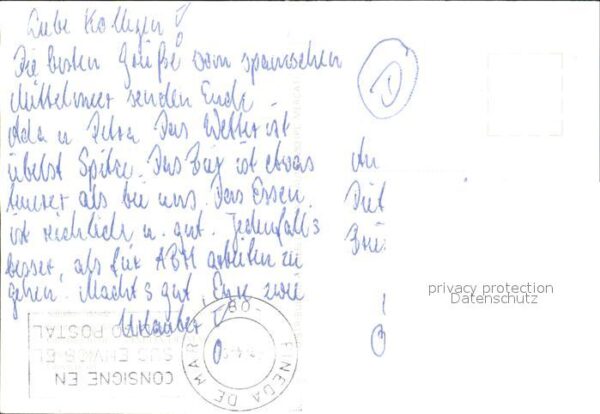 Liebe Kollegen!
Die besten Grüße vom spanischen
Mittelmeer senden Euch
Ada u. Petra. Das Wetter ist
übelst Spitze. Das Bier ist etwas
teurer als bei uns. Das Essen
ist reichlich u. gut. Jedenfalls
besser, als für ABM arbeiten zu
gehen. Machts gut, Eure zwei
Urlauber!
D
An
privacy protection
Datenschutz
CONSIGNE EN
SUS ENVIOS EL
CODIGO POSTAL
PINEDA DE MAR